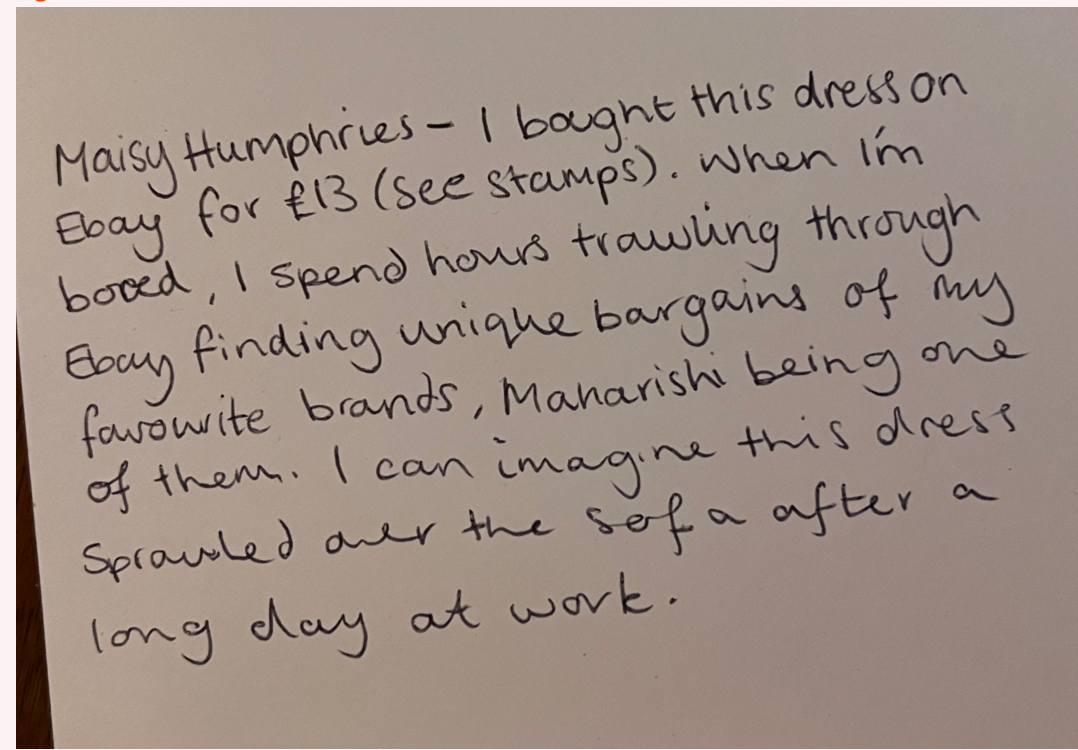 Maisy Humphries - I bought this dress on
Ebay for £13 (see stamps). When I'm
bored, I spend hours trawling through
Ebay finding unique bargains of my
favourite brands, Maharishi being one
of them. I can imagine this dress
sprawled over the sofa after a
long day at work.